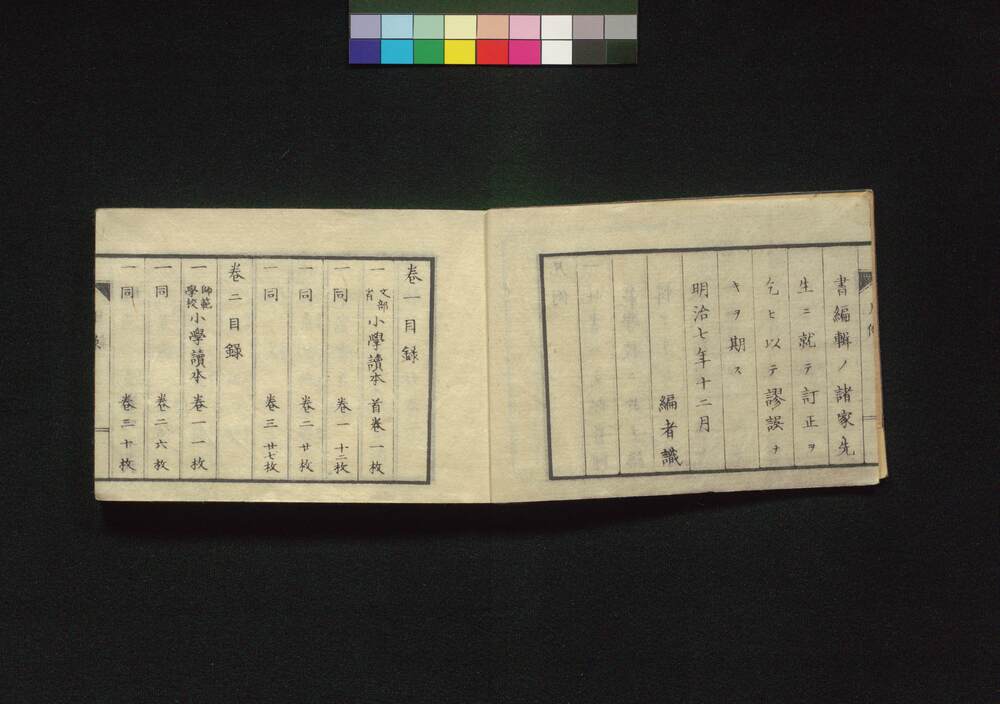 書編輯ノ諸家先
生ニ就テ訂正ヲ
乞ヒ以テ謬誤ナ
キヲ期ス
明治七年十二月
編者識
巻一目録
一 文部省 小學讀本 首巻 一枚
一 同 巻一 十二枚
一 同 巻二 廿枚
一 同 巻三 廿七枚
巻二目録
一 師範學校 小學讀本 巻一 一枚
一 同 巻二 六枚
一 同 巻三 十枚